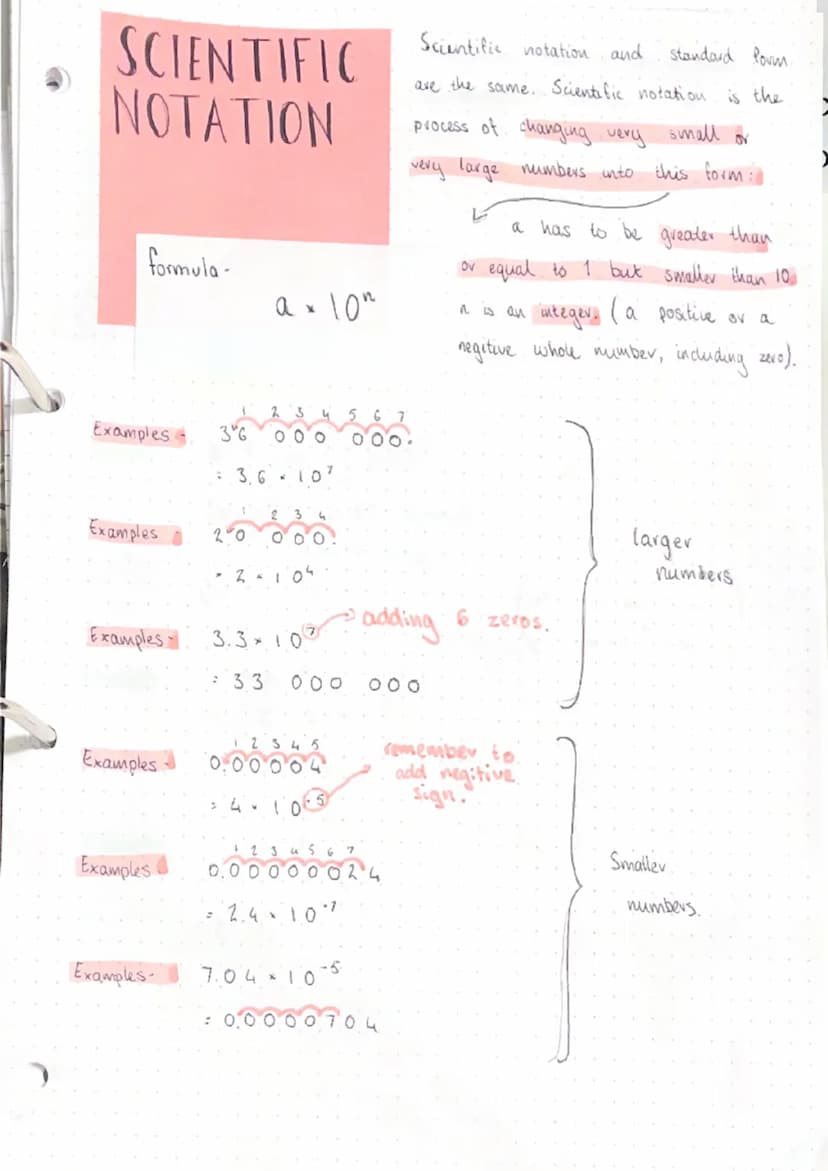 SCIENTIFIC
NOTATION
formula-
a × 10ⁿ
Scientific notation and standard form
are the same. Scientific notation is the
process of changing very small or
very large numbers into this form:
a has to be greater than
or equal to 1 but smaller than 10
n is an integer. (a positive or a
negitive whole number, including zero).
1 2 3 4 5 6 7
Examples - 36 000 000.
= 3.6 × 10⁷
1 2 3 4
Examples - 20 000.
= 2 × 10⁴
Examples - 3.3 × 10⁷ adding 6 zeros.
= 33 000 000
larger
numbers
1 2 3 4 5
Examples - 0.00004
= 4 × 10⁻⁵
remember to
add negitive
sign.
1 2 3 4 5 6 7
Examples - 0.00000024
= 2.4 × 10⁻⁷
Examples- 7.04 × 10⁻⁵
= 0.0000704
Smaller
numbers.